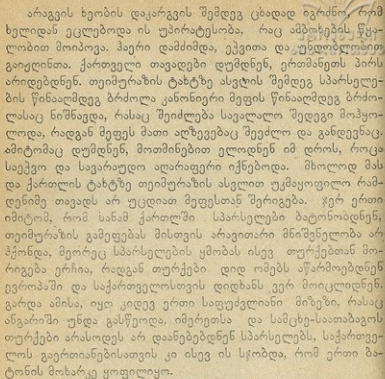 არაგვის ხეობის დაკარგვის შემდეგ ცხადად იგრძნო, რომ
ხელიდან ეცლებოდა ის უპირატესობა, რაც ამბოხების წყა-
ლობით მოიპოვა. ჰაერი დამძიმდა, ეჭვითა და უნდობლობით
გაიჟღინთა. ქართველი თავადები დუმდნენ, ერთმანეთს პირს
არიდებდნენ. თეიმურაზის ტახტზე ასვლის შემდეგ სპარსელე-
ბის წინააღმდეგ ბრძოლა კანონიერი მეფის წინააღმდეგ ბრძო-
ლასაც ნიშნავდა, რასაც შეიძლება სავალალო შედეგი მოჰყო-
ლოდა, რადგან მეფეს მათი აღზევებაც შეეძლო და განდევნაც.
ამიტომაც დუმდნენ, მოთმინებით ელოდნენ იმ დროს, როცა
საეჭვო და სავარაუდო აღარაფერი იქნებოდა. მხოლოდ მას
და ქართლის ტახტზე თეიმურაზის ასვლით უკმაყოფილო რამ-
დენიმე თავადს არ უცდიათ მეფესთან შერიგება. ჯერ ერთი
იმიტომ, რომ სანამ ქართლში სპარსელები ბატონობდნენ,
თეიმურაზის გამეფებას მისთვის არავითარი მნიშვნელობა არ
ჰქონდა, მეორეც სპარსელების ყმობას ისევ თურქებთან მო-
რიგება ერჩია, რადგან თურქები დიდ ომებს აწარმოებდნენ
ევროპაში და საქართველოსთვის დიდხანს ვერ მოიცლიდნენ.
გარდა ამისა, იყო კიდევ ერთი საფუძვლიანი მიზეზი, რასაც
ანგარიში უნდა გასწეოდა, იმერეთსა და სამცხე-საათაბაგოს
თურქები არასოდეს არ დაანებებდნენ სპარსელებს, საქართვე-
ლოს გაერთიანებისათვის კი ისევ ის სჯობდა, რომ ერთი ბა-
ტონის მოხარკე ყოფილიყო.